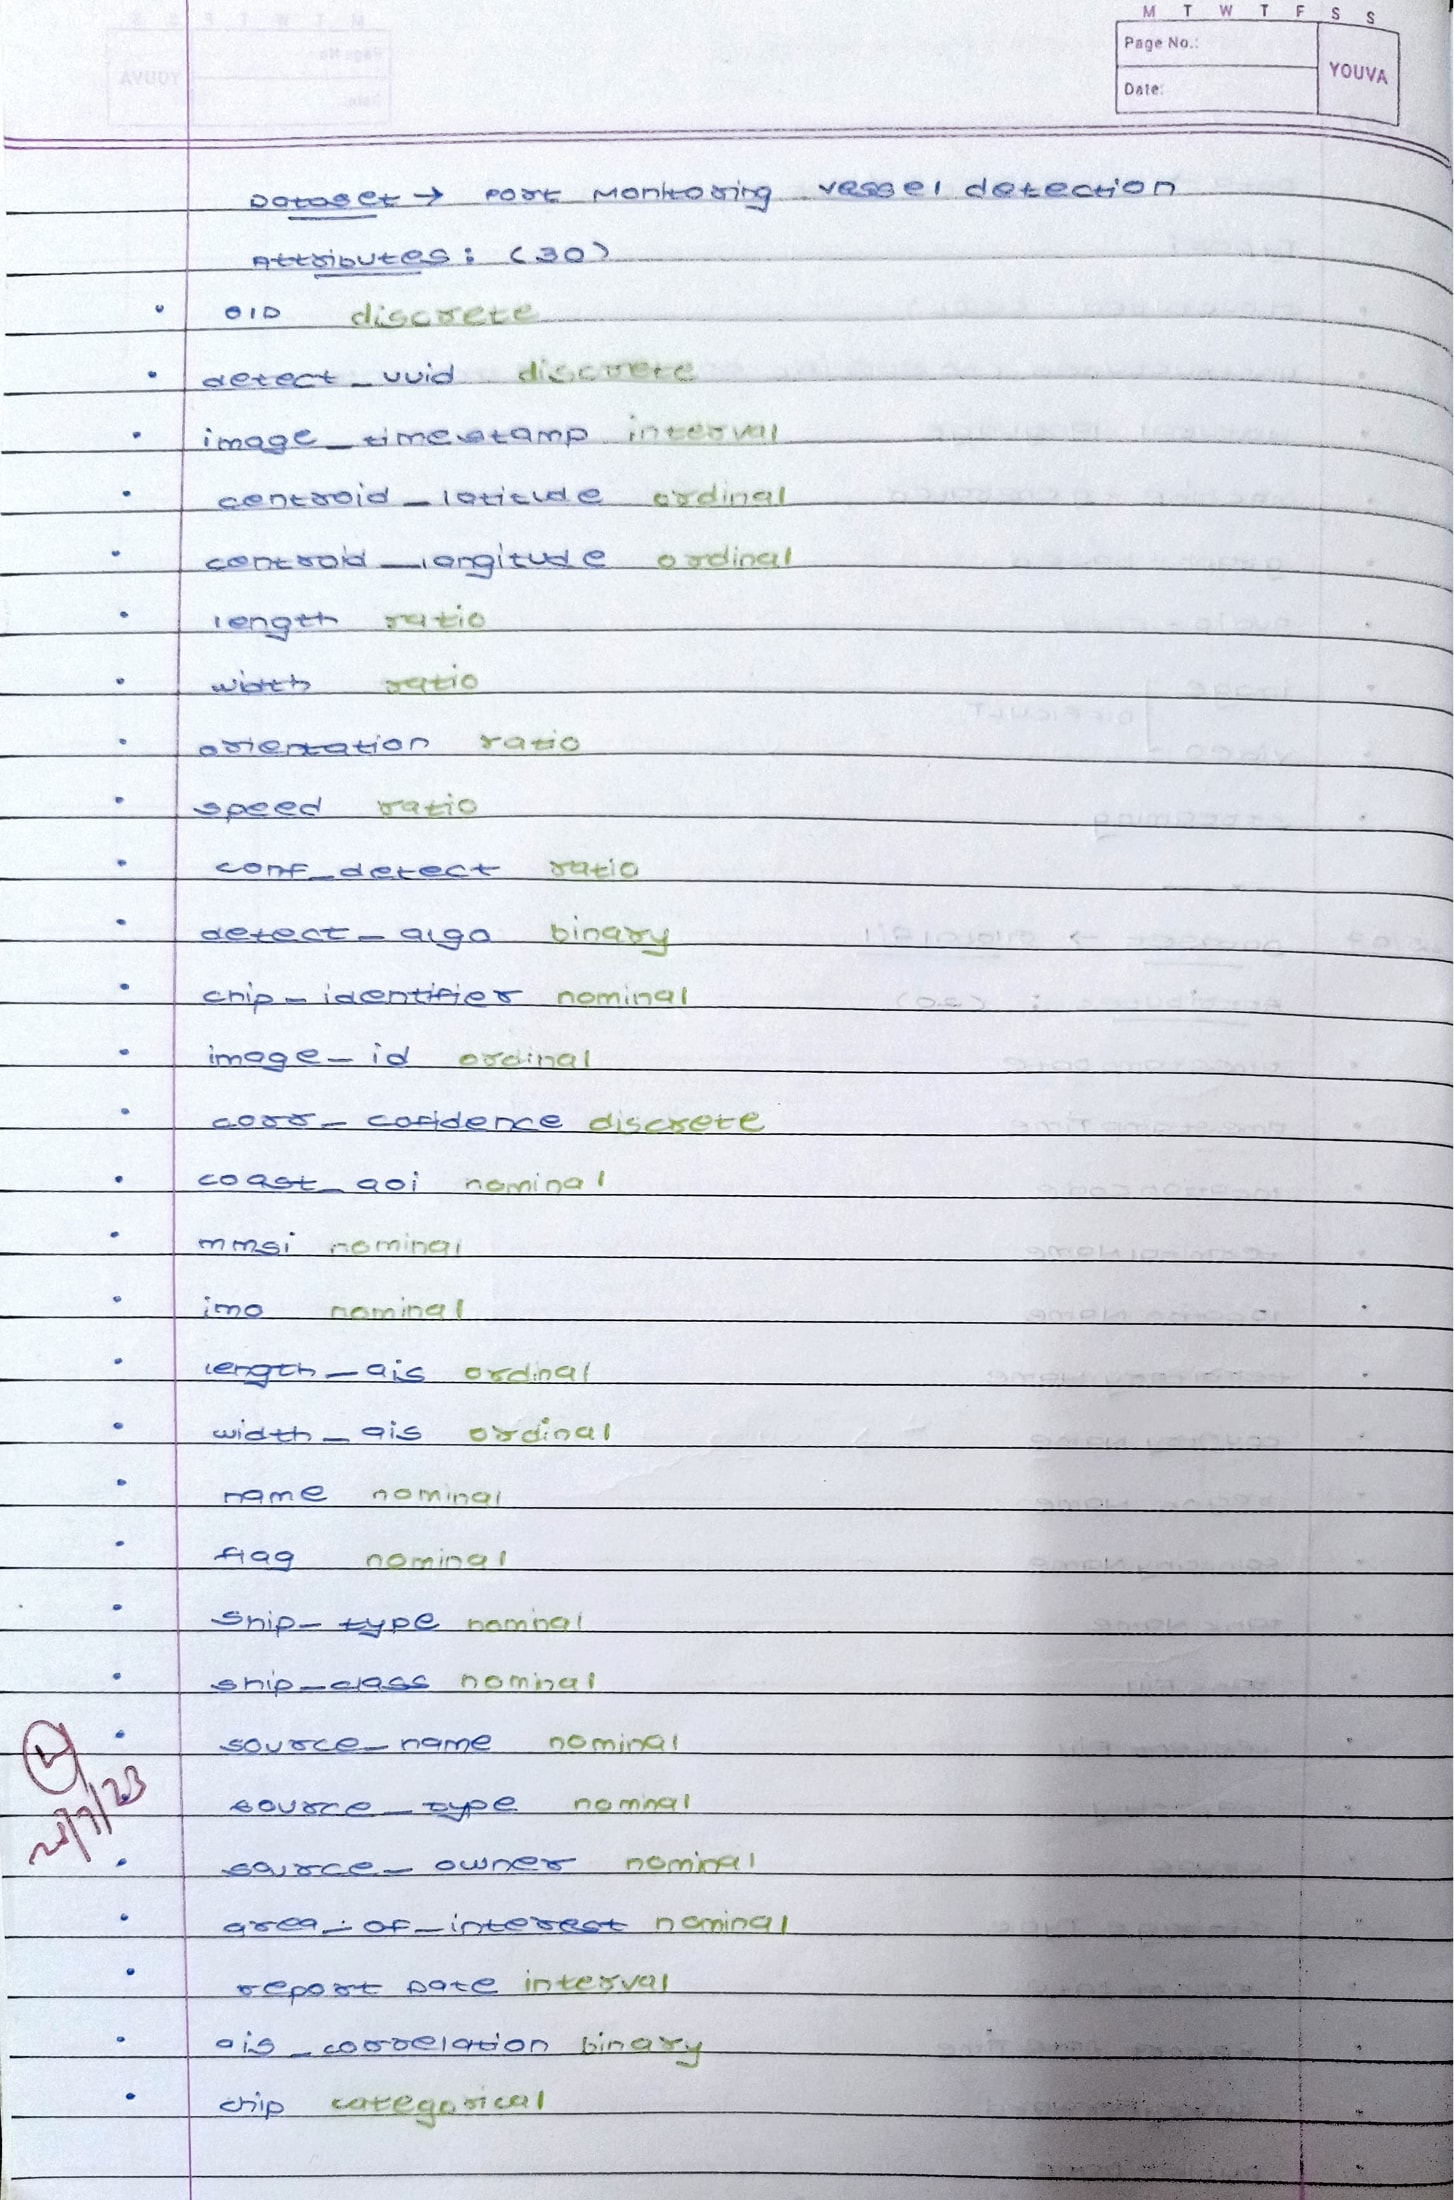 M T W T F S S
Page No.:
YOUVA
Date:
Dataset → Port Monitoring vessel detection
Attributes: (30)
• OID discrete
• detect_uuid discrete
• image_timestamp interval
• centroid_latitude ordinal
• centroid_longitude ordinal
• length ratio
• width ratio
• orientation ratio
• speed ratio
• conf_detect ratio
• detect_algo binary
• chip_identifier nominal
• image_id ordinal
• corr_cofidence discrete
• coast_aoi nominal
• mmsi nominal
• imo nominal
• length_ais ordinal
• width_ais ordinal
• name nominal
• flag nominal
• Ship_type nominal
• ship_class nominal
• source_name nominal
• source_type nominal
• source_owner nominal
• area_of_interest nominal
• report Date interval
• ais_correlation binary
• chip categorical